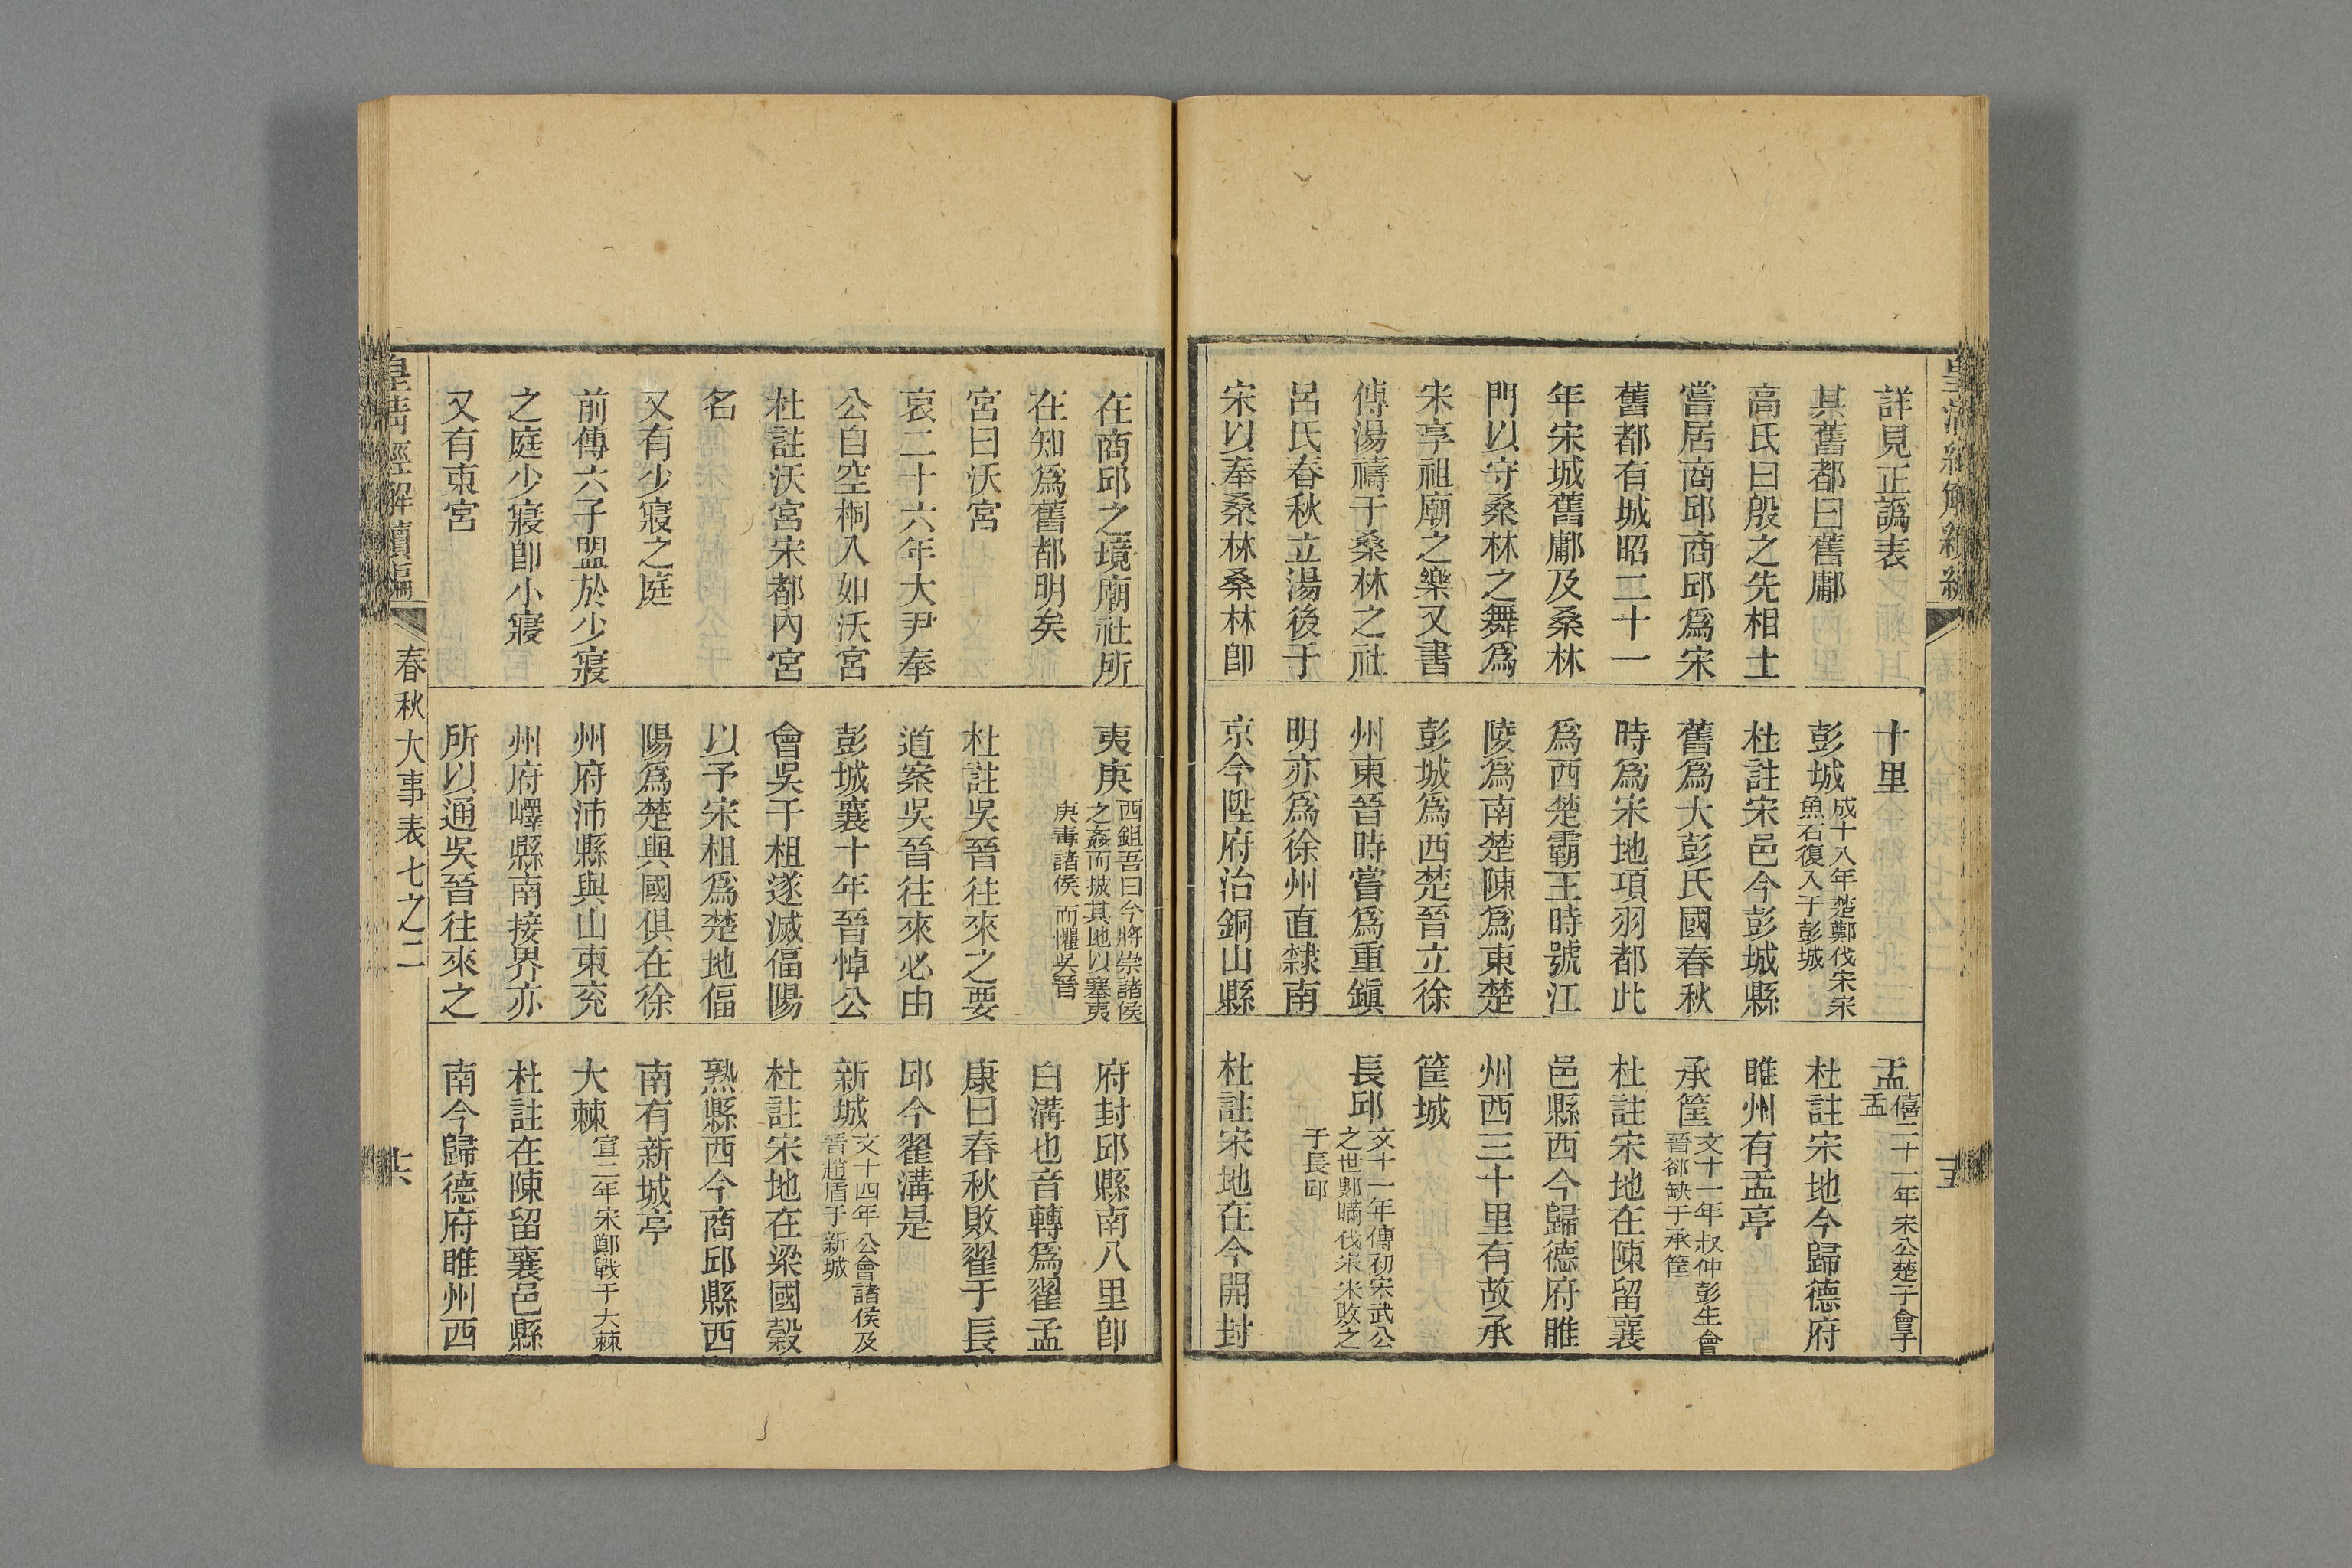 詳見正譌表
其舊都曰舊鄘
高氏曰殷之先相土
嘗居商邱商邱爲宋
舊都有城昭二十一
年宋城舊鄘及桑林
門以守桑林之舞爲
宋享祖廟之樂又書
傳湯禱于桑林之社
呂氏春秋立湯後于
宋以奉桑林桑林卽
十里
彭城
成十八年楚鄭伐宋宋
魚石復入于彭城
杜註宋邑今彭城縣
舊爲大彭氏國春秋
時爲宋地項羽都此
爲西楚霸王時號江
陵爲南楚陳爲東楚
彭城爲西楚晉立徐
州東晉時嘗爲重鎭
明亦爲徐州直隸南
京今陞府治銅山縣
盂
僖二十一年宋公楚子會于
盂
杜註宋地今歸德府
睢州有盂亭
承筐
文十一年叔仲彭生會
晉郤缺于承筐
杜註宋地在陳留襄
邑縣西今歸德府睢
州西三十里有故承
筐城
長邱
文十一年傳初宋武公
之世鄋瞞伐宋宋敗之
于長邱
杜註宋地在今開封
在商邱之境廟社所
在知爲舊都明矣
宮曰沃宮
哀二十六年大尹奉
公自空桐入如沃宮
杜註沃宮宋都內宮
名
又有少寢之庭
前傳六子盟於少寢
之庭少寢卽小寢
又有東宮
夷庚
西鉏吾曰今將崇諸侯
之姦而披其地以塞夷
庚毒諸侯而懼吳晉
杜註吳晉往來之要
道案吳晉往來必由
彭城襄十年晉悼公
會吳于柤遂滅偪陽
以予宋柤爲楚地偪
陽爲楚與國俱在徐
州府沛縣與山東兗
州府嶧縣南接界亦
所以通吳晉往來之
府封邱縣南八里卽
白溝也音轉爲翟孟
康曰春秋敗翟于長
邱今翟溝是
新城
文十四年公會諸侯及
晉趙盾于新城
杜註宋地在梁國穀
熟縣西今商邱縣西
南有新城亭
大棘
宣二年宋鄭戰于大棘
杜註在陳留襄邑縣
南今歸德府睢州西
皇清經解續編
春秋大事表七之二